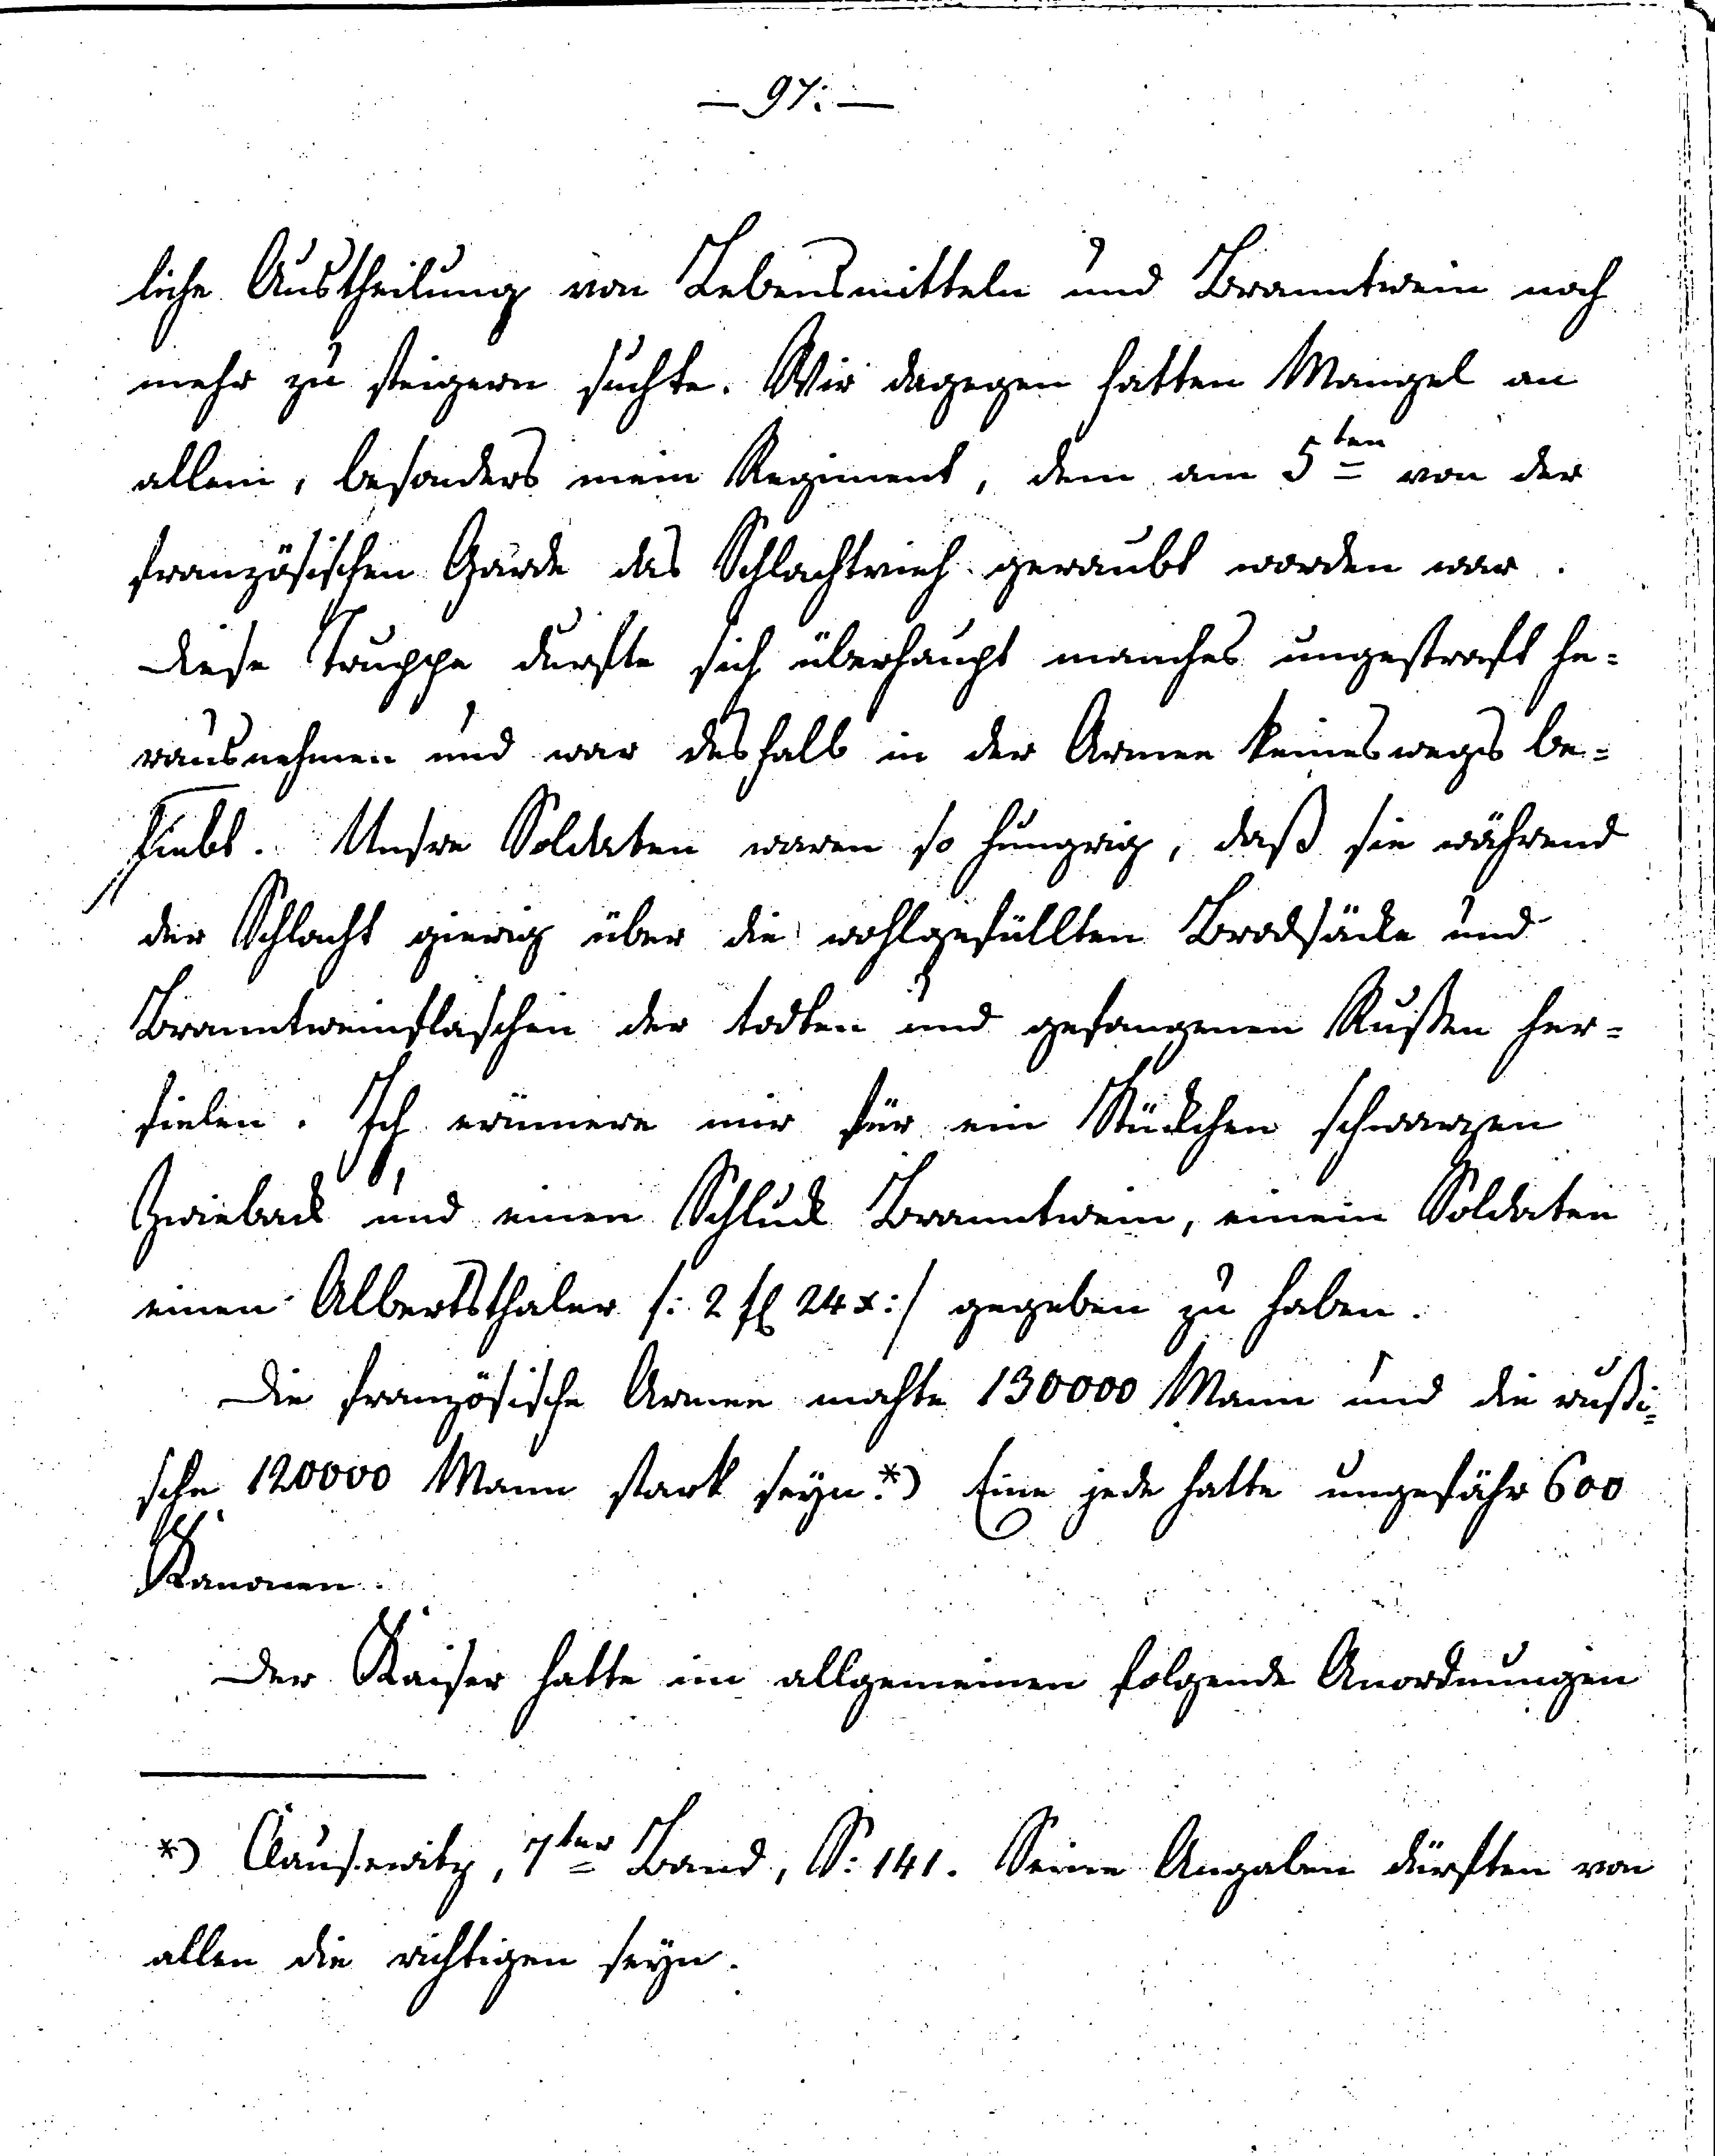 — 97. —
liche Austheilung von Lebensmitteln und Branntwein noch
mehr zu steigern suchte. Wir dagegen hatten Mangel an
allem, besonders mein Regiment, dem am 5ten von der
französischen Garde das Schlachtvieh geraubt worden war.
Diese Truppe durfte sich überhaupt manches ungestraft he-
rausnehmen und war deshalb in der Armee keineswegs be-
liebt. Unsre Soldaten waren so hungrig, daß sie während
der Schlacht gierig über die wohlgefüllten Brodsäcke und
Branntweinflaschen der todten und gefangenen Rußen her-
fielen. Ich erinnere mir für ein Stückchen schwarzen
Zwieback und einen Schluck Branntwein, einem Soldaten
einen Albertsthaler /: 2 fl 24 x :/ gegeben zu haben.
Die französische Armee mochte 130000 Mann und die rußi-
sche 120000 Mann stark seyn.*) Eine jede hatte ungefähr 600
Kanonen.
Der Kaiser hatte im allgemeinen folgende Anordnungen
*) Clausewitz, 7ter Band, S: 141. Seine Angaben dürften von
allen die richtigen seyn.